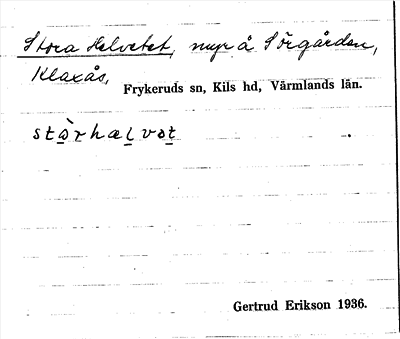 Stora Helvetet, myr å Sörgården,
Klaxås, Frykeruds sn, Kils hd, Värmlands län.
stòrhælvət
Gertrud Erikson 1936.